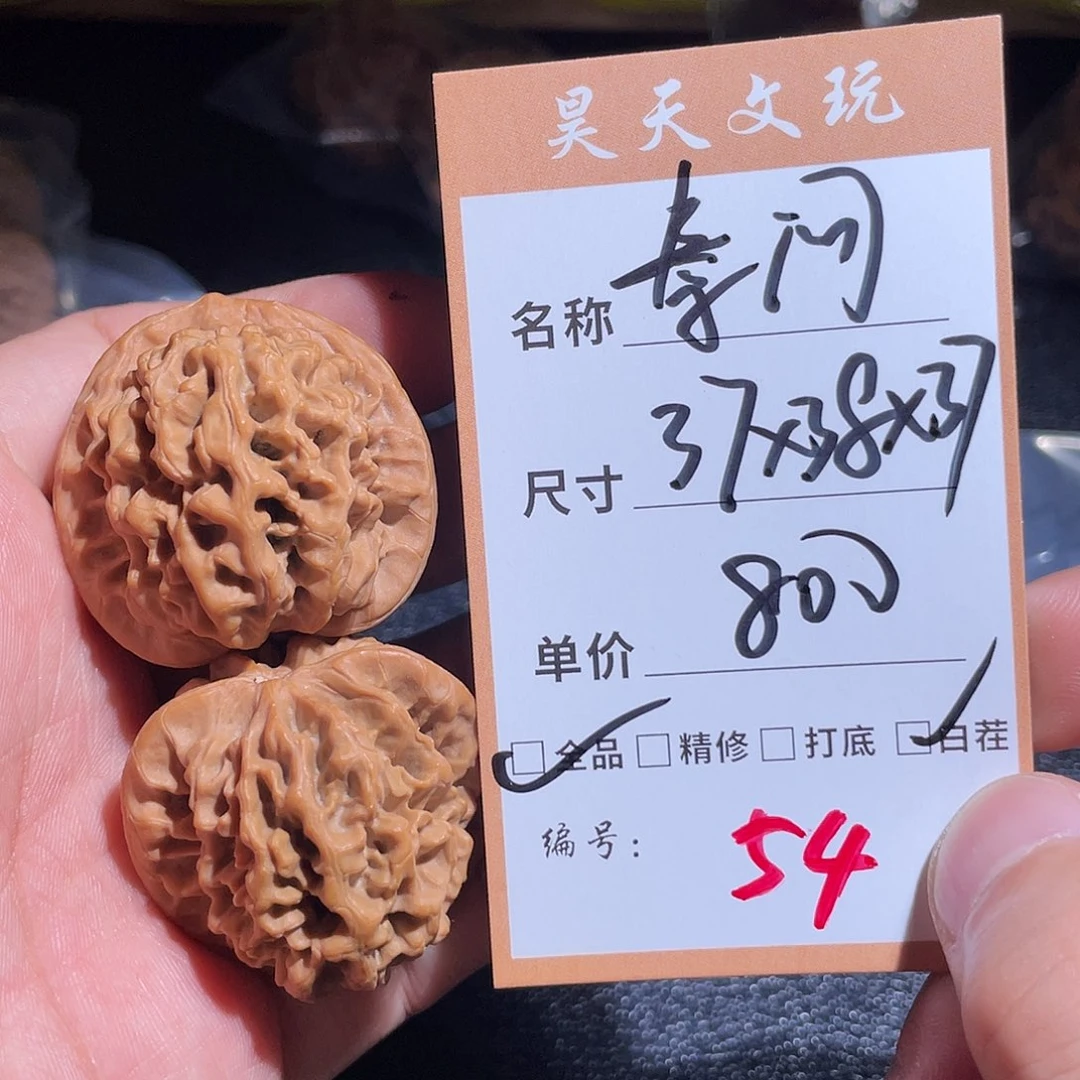 昊天文玩
名称
尺寸 37x38x37
单价 800
全品 精修 打底 白茬
编号: 54